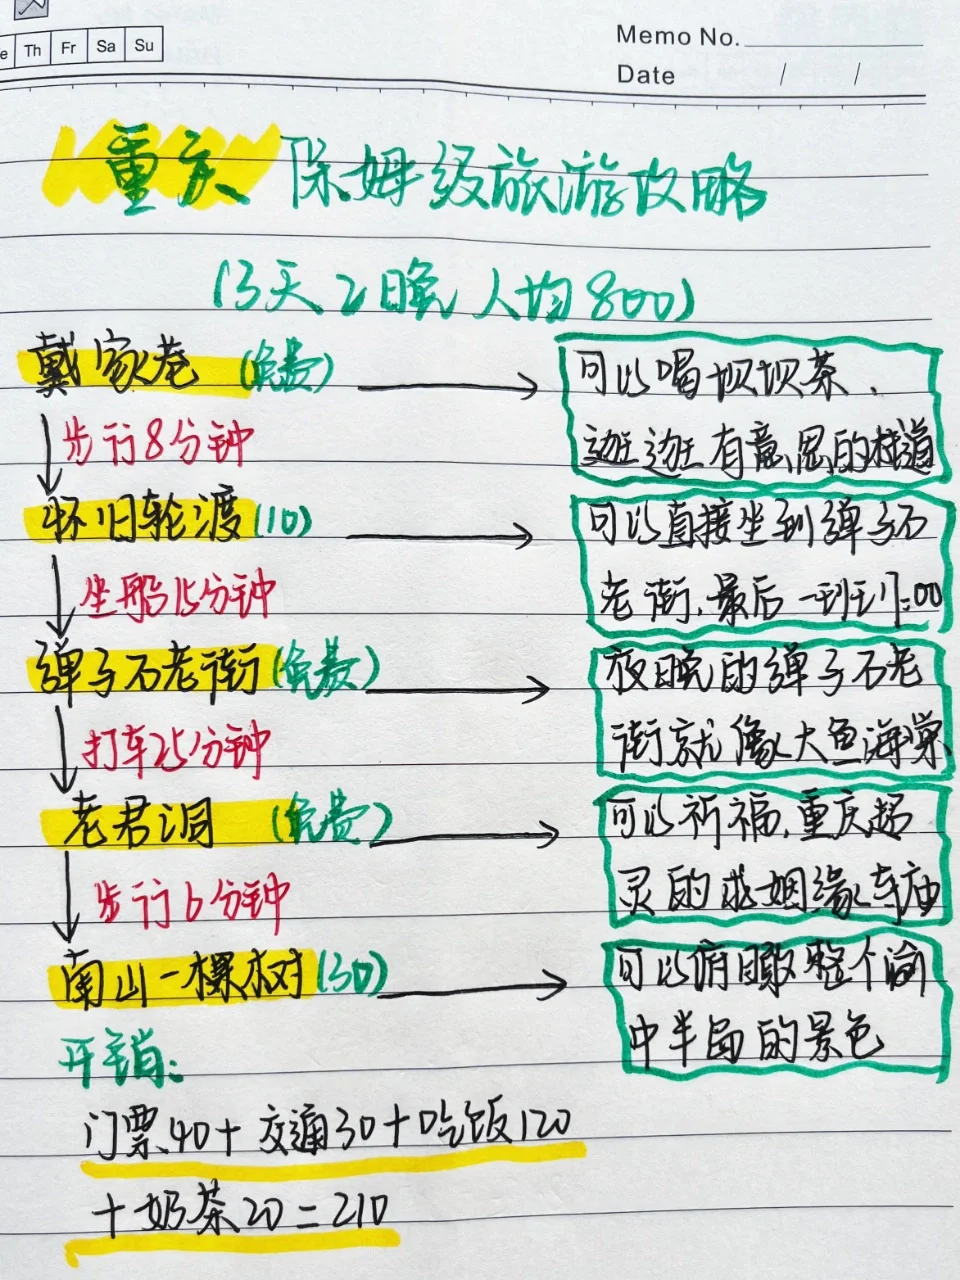 e Th Fr Sa Su
Memo No.
Date / /
重庆 保姆级旅游攻略
(3天2晚 人均800)
戴家巷 (免费)
可以喝坝坝茶、
逛逛有意思的栈道
步行8分钟
怀旧轮渡(10)
可以直接坐到弹子石
老街,最后一班到17:00
坐船15分钟
弹子石老街(免费)
夜晚的弹子石老
街就像大鱼海棠
打车25分钟
老君洞 (免费)
可以祈福,重庆超
灵的求姻缘寺庙
步行6分钟
南山一棵树(30)
可以俯瞰整个渝
中半岛的景色
开销:
门票40+交通30+吃饭120
+奶茶20=210